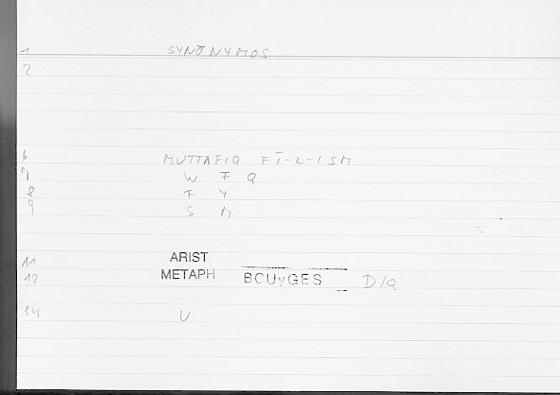 1 SYNŌNYMOS
2
6 MUTTAFIQ FĪ-L-ISM
7 W F Q
8 F Y
9 S M
11 ARIST
12 METAPH BOUyGES D/a
14 U